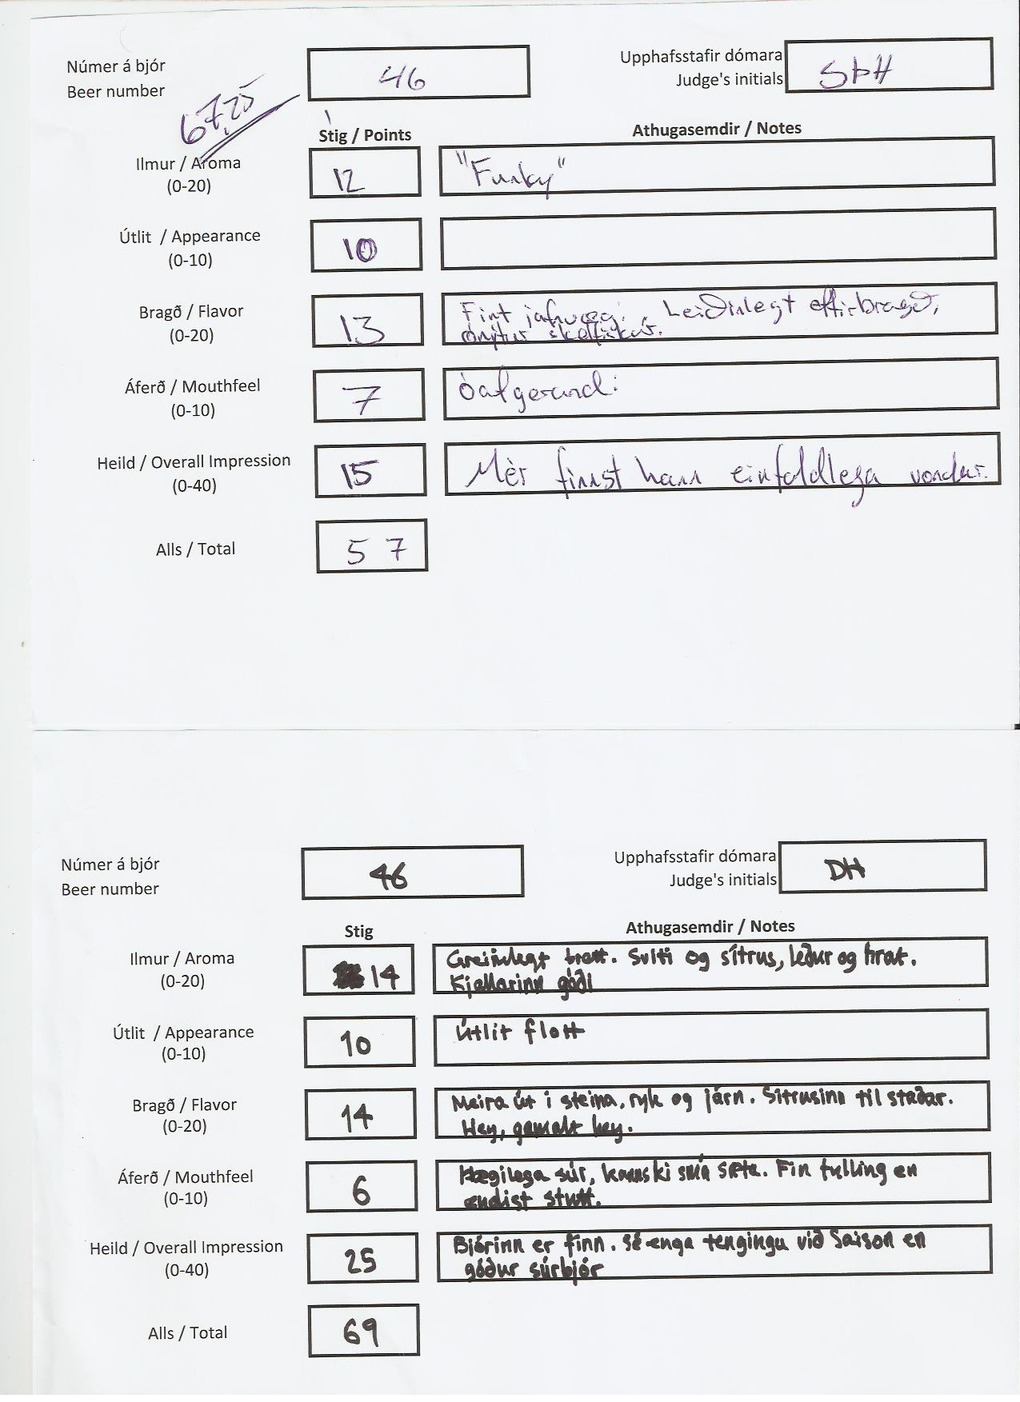 Númer á bjór
Beer number
46
Upphafsstafir dómara
Judge's initials
SÞH
67,25
Stig / Points
Athugasemdir / Notes
Ilmur / Aroma
(0-20)
12
"Funky"
Útlit / Appearance
(0-10)
10
Bragð / Flavor
(0-20)
13
Fínt jafnvægi. Leiðinlegt eftirbragð,
ónýtur skelfiskur.
Áferð / Mouthfeel
(0-10)
7
óafgerandi
Heild / Overall Impression
(0-40)
15
Mér finnst hann einfaldlega vondur.
Alls / Total
57
Númer á bjór
Beer number
46
Upphafsstafir dómara
Judge's initials
DH
Stig
Athugasemdir / Notes
Ilmur / Aroma
(0-20)
14
Greinilegt brett. Sviti og sítrus, leður og hrat.
Kjallarinn góði
Útlit / Appearance
(0-10)
10
Útlit flott
Bragð / Flavor
(0-20)
14
Meira út í steina, ryk og járn. Sítrusinn til staðar.
Hey, gamalt hey.
Áferð / Mouthfeel
(0-10)
6
Hægilega súr, kannski smá sæta. Fín fylling en
endist stutt.
Heild / Overall Impression
(0-40)
25
Bjórinn er fínn. Sé enga tengingu við Saison en
góður súrbjór
Alls / Total
69